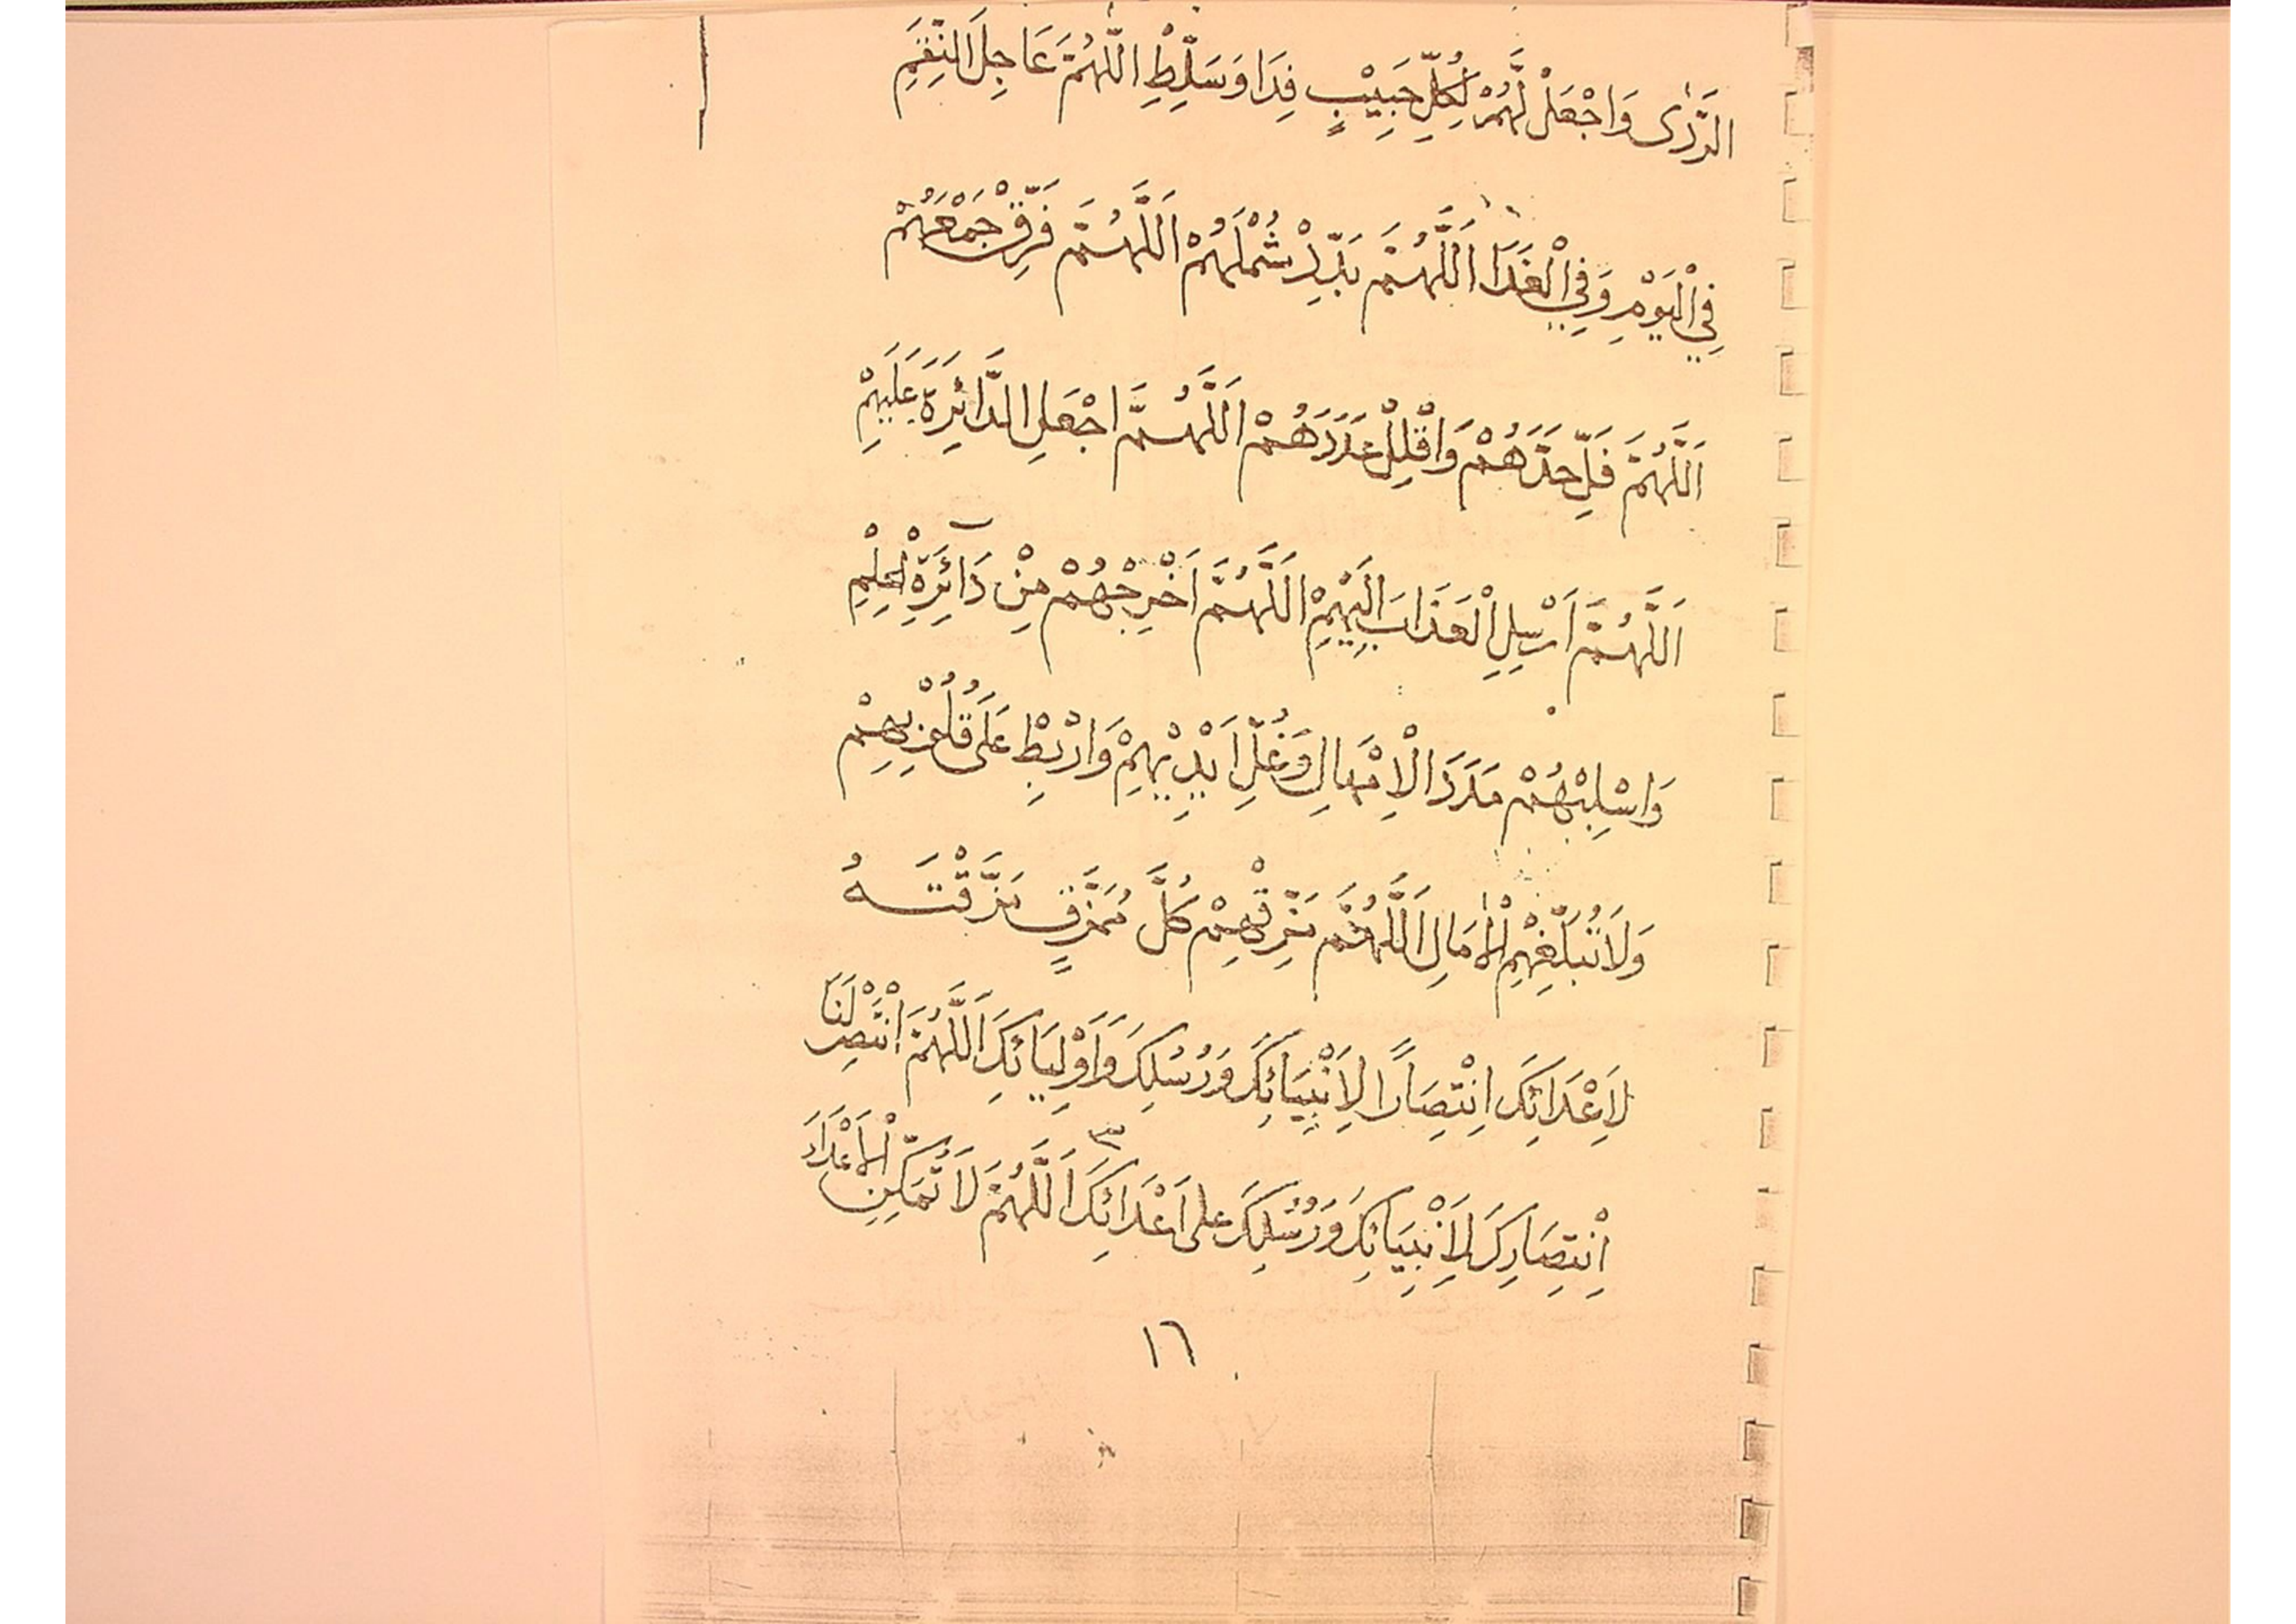 الرَّدٰى وَاجْعَلْ لَّهُمْ لِكُلِّ حَبِيْبٍ فِدَا وَسَلِّطِ اللّٰهُمَّ عَاجِلَ النِّقَمِ
فِي الْيَوْمِ وَفِي الْغَدَا اَللّٰهُمَّ بَدِّدْ شَمْلَهُمْ اَللّٰهُمَّ فَرِّقْ جَمْعَهُمْ
اَللّٰهُمَّ فَلِّ حَدَّهُمْ وَاقْلِلْ عَدَدَهُمْ اَللّٰهُمَّ اجْعَلِ الدَّائِرَةَ عَلَيْهِمْ
اَللّٰهُمَّ اَرْسِلِ الْعَذَابَ اِلَيْهِمْ اَللّٰهُمَّ اَخْرِجْهُمْ مِنْ دَآئِرَةِ الْحِلْمِ
وَاسْلِبْهُمْ مَدَدَ الْاِمْهَالِ وَغُلِّ اَيْدِيْهِمْ وَارْبِطْ عَلٰى قُلُوْبِهِمْ
وَلَا تُبَلِّغْهِمِ الْاٰمَالِ اَللّٰهُمَّ مَزِّقْهِمْ كُلَّ مُمَزَّقٍ مَزَّقْتَهُ
لِاَعْدَائِكَ اِنْتِصَارًا لِاَنْبِيَائِكَ وَرُسُلِكَ وَاَوْلِيَائِكَ اَللّٰهُمَّ انْتَصِرْ لَنَا
اِنْتِصَارِكَ لِاَنْبِيَائِكَ وَرُسُلِكَ على اَعْدَائِكَ ٣ اَللّٰهُمَّ لَا تُمَكِّنِ الْاَعْدَاءَ
١٦